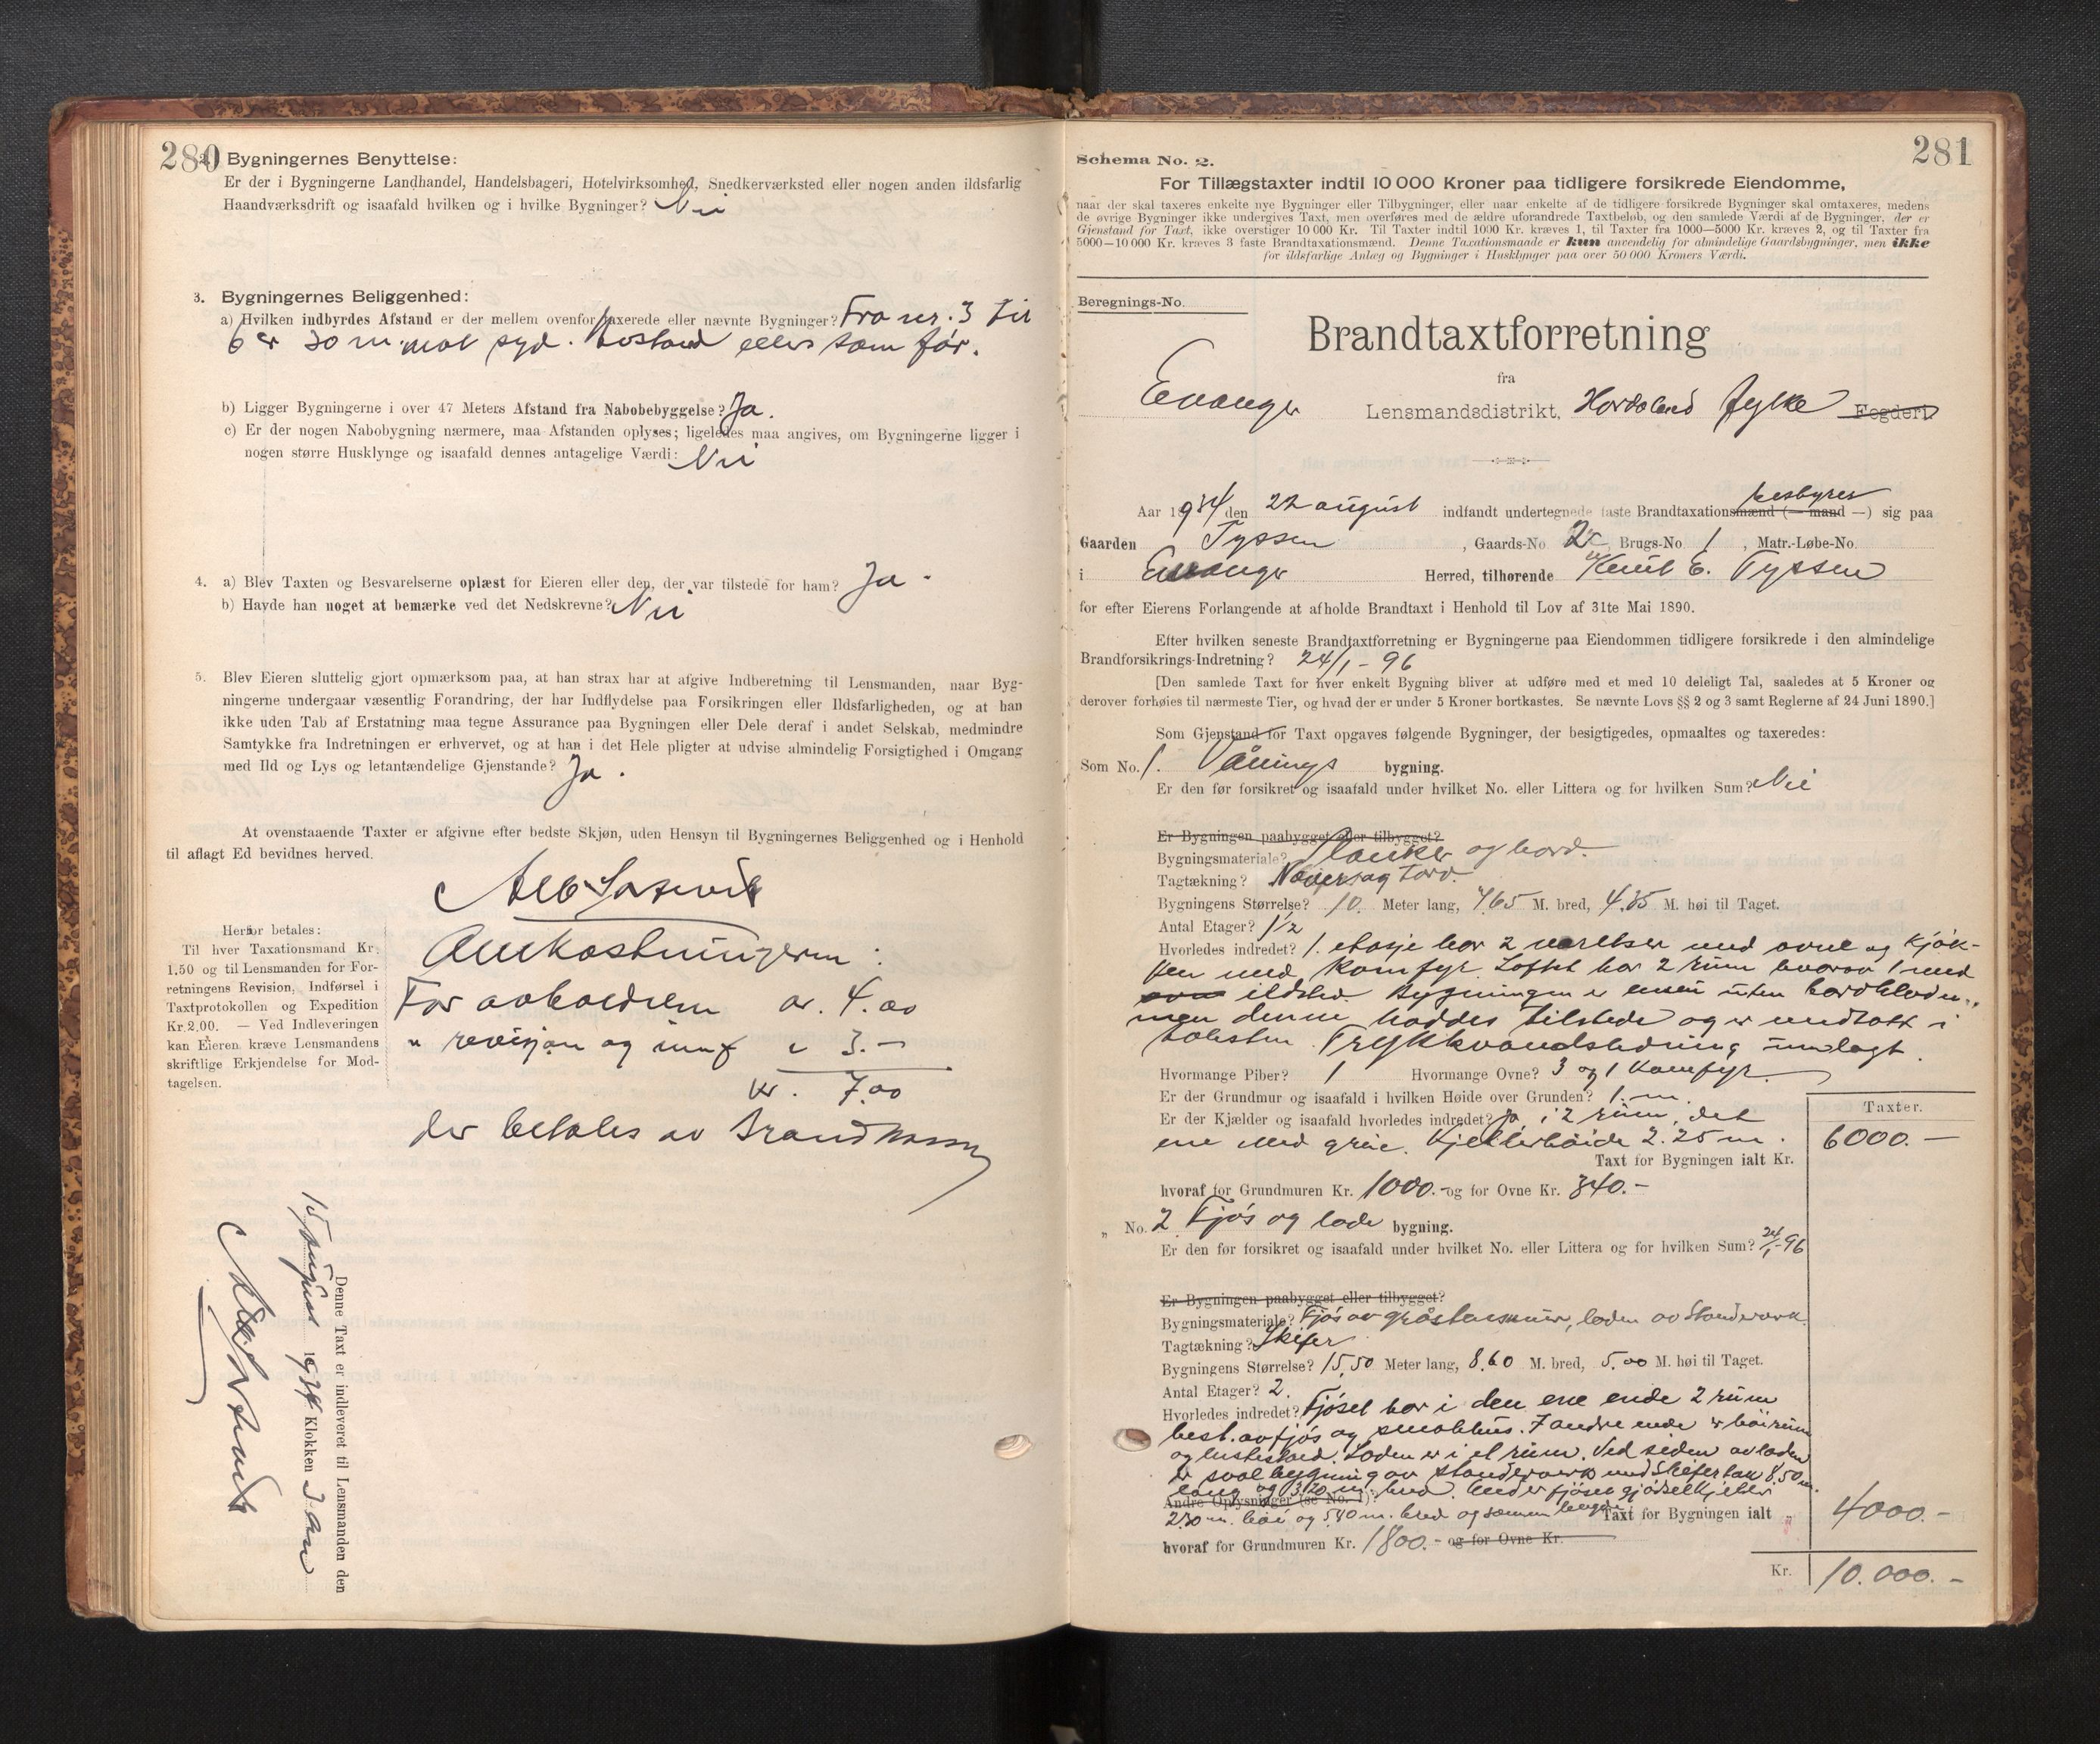 280
2. Bygningernes Benyttelse:
Er der i Bygningerne Landhandel, Handelsbageri, Hotelvirksomhed, Snedkerværksted eller nogen anden ildsfarlig
Haandværksdrift og isaafald hvilken og i hvilke Bygninger? Nei
3. Bygningernes Beliggenhed:
a) Hvilken indbyrdes Afstand er der mellem ovenfor taxerede eller nævnte Bygninger? Fra nr. 3 til
6 er 30 m. mot syd. Avstand ellers som før.
b) Ligger Bygningerne i over 47 Meters Afstand fra Nabobebyggelse? Ja.
c) Er der nogen Nabobygning nærmere, maa Afstanden oplyses; ligeledes maa angives, om Bygningerne ligger i
nogen større Husklynge og isaafald dennes antagelige Værdi: Nei
4. a) Blev Taxten og Besvarelserne oplæst for Eieren eller den, der var tilstede for ham? Ja.
b) Havde han noget at bemærke ved det Nedskrevne? Nei
5. Blev Eieren sluttelig gjort opmærksom paa, at han strax har at afgive Indberetning til Lensmanden, naar Byg-
ningerne undergaar væsentlig Forandring, der har Indflydelse paa Forsikringen eller Ildsfarligheden, og at han
ikke uden Tab af Erstatning maa tegne Assurance paa Bygningen eller Dele deraf i andet Selskab, medmindre
Samtykke fra Indretningen er erhvervet, og at han i det Hele pligter at udvise almindelig Forsigtighed i Omgang
med Ild og Lys og letantændelige Gjenstande? Ja.
At ovenstaaende Taxter er afgivne efter bedste Skjøn, uden Hensyn til Bygningernes Beliggenhed og i Henhold
til aflagt Ed bevidnes herved.
Herfor betales:
Til hver Taxationsmand Kr.
1.50 og til Lensmanden for For-
retningens Revision, Indførsel i
Taxtprotokollen og Expedition
Kr. 2.00. — Ved Indleveringen
kan Eieren kræve Lensmandens
skriftlige Erkjendelse for Mod-
tagelsen.
Omkostningerne:
For avholdelsen kr. 4.00
" revisjon og innf " 3.—
kr. 7.00
der betales av Brandkassen
Denne Taxt er indleveret til Lensmanden den
15 august 1934 Klokken
281
Schema No. 2.
For Tillægstaxter indtil 10 000 Kroner paa tidligere forsikrede Eiendomme,
naar der skal taxeres enkelte nye Bygninger eller Tilbygninger, eller naar enkelte af de tidligere forsikrede Bygninger skal omtaxeres, medens
de øvrige Bygninger ikke undergives Taxt, men overføres med de ældre uforandrede Taxtbeløb, og den samlede Værdi af de Bygninger, der er
Gjenstand for Taxt, ikke overstiger 10 000 Kr. Til Taxter indtil 1000 Kr. kræves 1, til Taxter fra 1000—5000 Kr. kræves 2, og til Taxter fra
5000—10 000 Kr. kræves 3 faste Brandtaxationsmænd. Denne Taxationsmaade er kun anvendelig for almindelige Gaardsbygninger, men ikke
for ildsfarlige Anlæg og Bygninger i Husklynger paa over 50 000 Kroners Værdi.
Beregnings-No.
Brandtaxtforretning
fra
Evanger Lensmandsdistrikt, Hordaland fylke Fogderi
bestyrer
Aar 1934 den 22 august indfandt undertegnede faste Brandtaxationsmænd (— mand —) sig paa
Gaarden Tyssen, Gaards-No. 2, Brugs-No. 1, Matr.-Løbe-No.
i Evanger Herred, tilhørende Knut E. Tyssen
for efter Eierens Forlangende at afholde Brandtaxt i Henhold til Lov af 31te Mai 1890.
Efter hvilken seneste Brandtaxtforretning er Bygningerne paa Eiendommen tidligere forsikrede i den almindelige
Brandforsikrings-Indretning? 24/1 - 96
[Den samlede Taxt for hver enkelt Bygning bliver at udføre med et med 10 deleligt Tal, saaledes at 5 Kroner og
derover forhøies til nærmeste Tier, og hvad der er under 5 Kroner bortkastes. Se nævnte Lovs §§ 2 og 3 samt Reglerne af 24 Juni 1890.]
Som Gjenstand for Taxt opgaves følgende Bygninger, der besigtigedes, opmaaltes og taxeredes:
Som No. 1. Vånings bygning.
Er den før forsikret og isaafald under hvilket No. eller Littera og for hvilken Sum? Nei
Er Bygningen paabygget eller tilbygget?
Bygningsmateriale? Planker og bord.
Tagtækning? Never og torv.
Bygningens Størrelse? 10. Meter lang, 7.65 M. bred, 4.85 M. høi til Taget.
Antal Etager? 1 1/2
Hvorledes indredet? 1. etasje har 2 værelser med ovne og kjøk-
ken med komfyr. Loftet har 2 rum hvorav 1 med
ovn ildsted. Bygningen er ennu uten bordkledn.,
men denne haddes tilstede og er medtatt i
taksten. Trykkvandsledning innlagt.
Hvormange Piber? 1 Hvormange Ovne? 3 og 1 komfyr.
Er der Grundmur og isaafald i hvilken Høide over Grunden? 1. m.
Er der Kjælder og isaafald hvorledes indredet? Ja, i 2 rum, det
ene med grue. Kjellerhøide 2.25 m.
Taxter.
Taxt for Bygningen ialt Kr. 6000.—
hvoraf for Grundmuren Kr. 1000.- og for Ovne Kr. 340.-
" No. 2 Fjøs og lade bygning.
Er den før forsikret og isaafald under hvilket No. eller Littera og for hvilken Sum? 24/1-96
Er Bygningen paabygget eller tilbygget?
Bygningsmateriale? Fjøs av gråstensmur, laden av standerverk.
Tagtækning? Skifer
Bygningens Størrelse? 15.50 Meter lang, 8.60 M. bred, 5.00 M. høi til Taget.
Antal Etager? 2.
Hvorledes indredet? Fjøset har i den ene ende 2 rum
best. av fjøs og smalehus. I andre ende er høirum
og hestestald. Laden er i et rum. Ved siden av laden
er svalbygning av standerverk med skifertak 8.50 m.
lang og 3.20 m. bred. Under fjøset gjødselkjeller
Andre Oplysninger (se No. 1)?
2.30 m. høi og 5.40 m. bred og samme lengde
Taxt for Bygningen ialt " 4000.-
hvoraf for Grundmuren Kr. 1800.- og for Ovne Kr.
Kr. 10.000.-